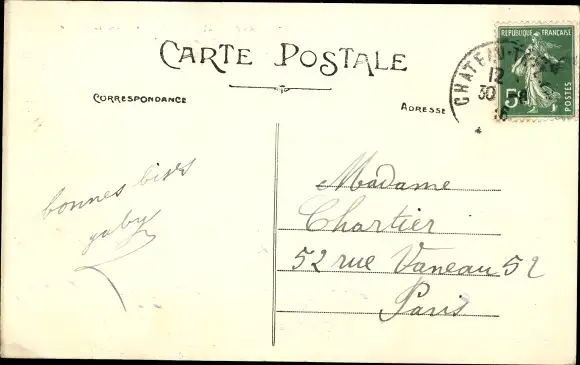 CARTE POSTALE
CORRESPONDANCE
ADRESSE
REPUBLIQUE FRANÇAISE
5c
POSTES
12
30 -8
16
bonnes bises
gaby
Madame
Chartier
52 rue Vaneau 52
Paris